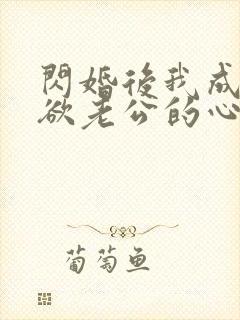 閃婚後我成
欲老公的心
葡萄鱼